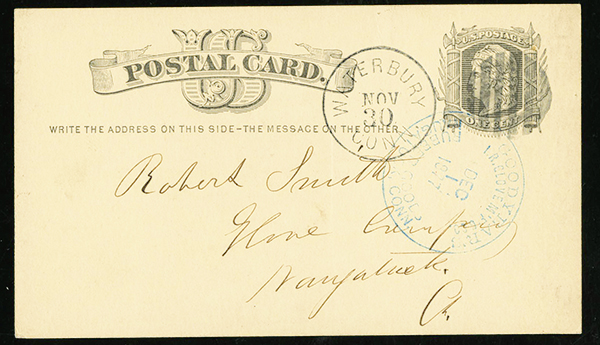 US
POSTAL CARD.
U.S. POSTAGE
ONE CENT
WATERBURY
NOV
30
CONN.
WRITE THE ADDRESS ON THIS SIDE–THE MESSAGE ON THE OTHER
GOODYEAR'S
I.R. GLOVE MF'G
DEC
1
1877
CONN.
Robert Smith
Glove Company
Naugatuck.
Ct.